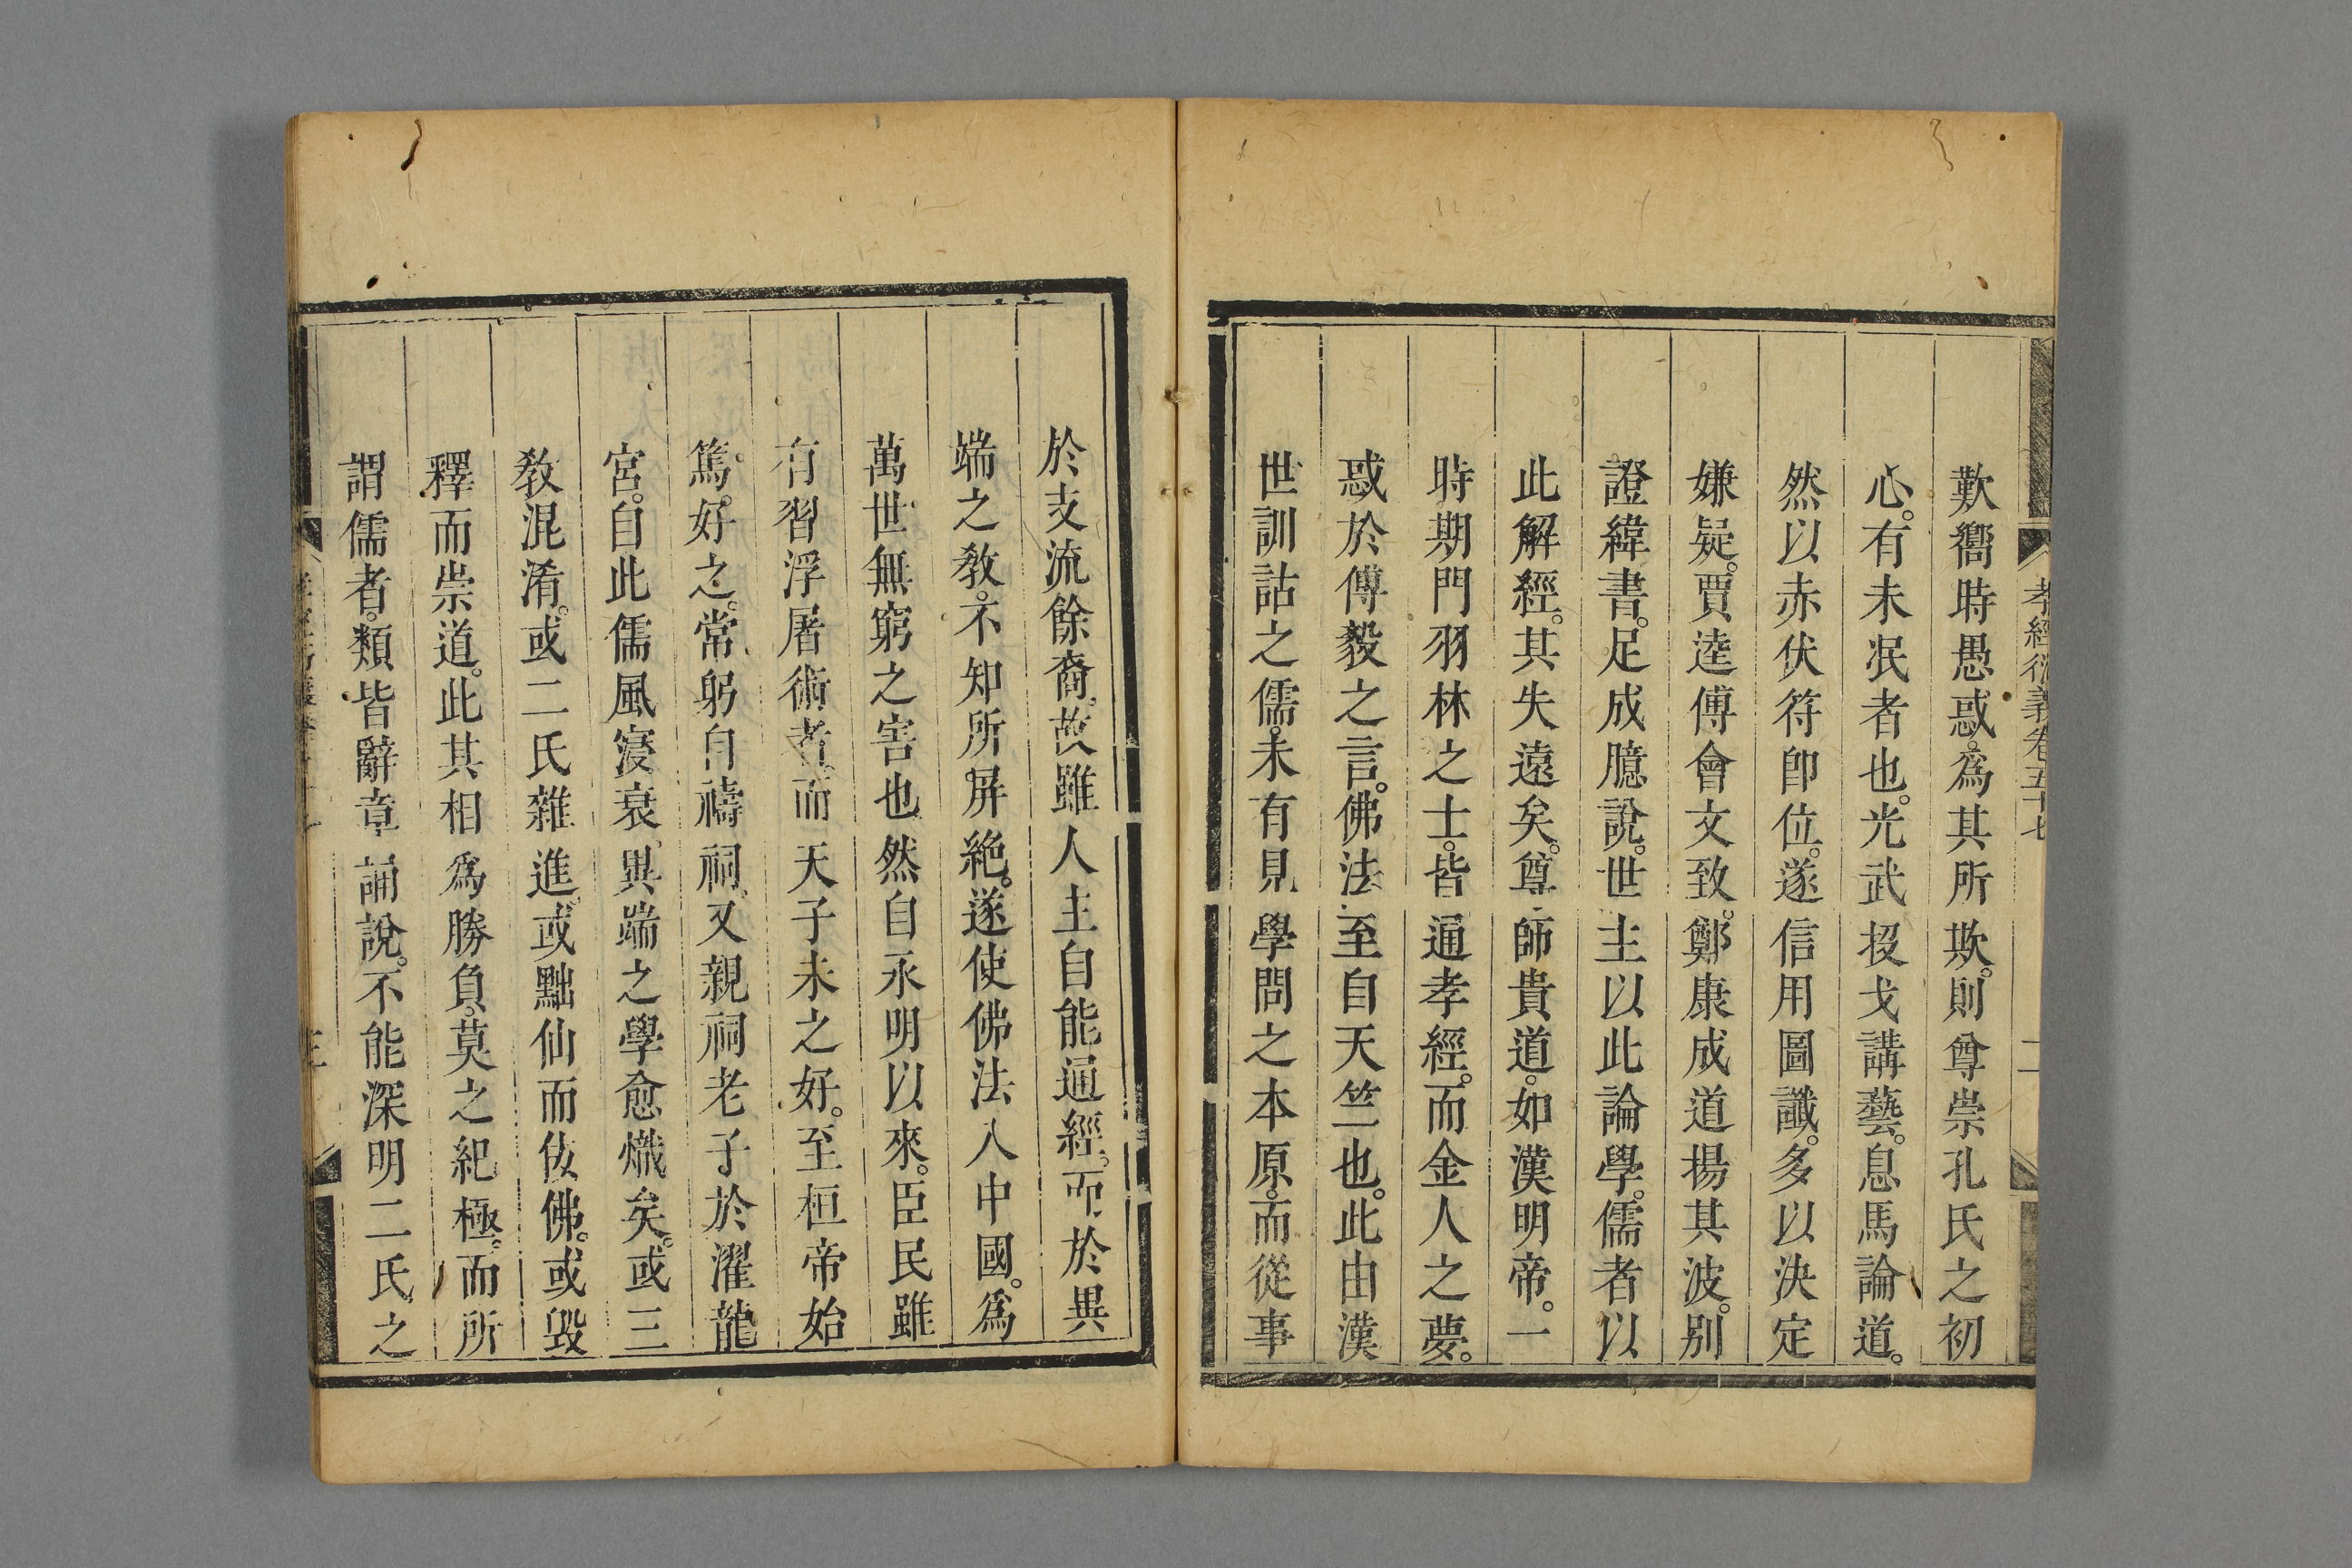 孝經衍義卷五十七
二
歎嚮時愚惑。爲其所欺。則尊崇孔氏之初
心。有未泯者也。光武投戈講藝。息馬論道。
然以赤伏符卽位。遂信用圖讖。多以決定
嫌疑。賈逵傅會文致。鄭康成道揚其波。別
證緯書。足成臆說。世主以此論學。儒者以
此解經。其失遠矣。尊師貴道。如漢明帝。一
時期門羽林之士。皆通孝經。而金人之夢。
惑於傅毅之言。佛法至自天竺也。此由漢
世訓詁之儒。未有見學問之本原。而從事
於支流餘裔。故雖人主自能通經。而於異
端之敎。不知所屏絶。遂使佛法入中國。爲
萬世無窮之害也然自永明以來。臣民雖
有習浮屠術者而天子未之好。至桓帝始
篤。好之。常躬自禱祠、又親祠老子於濯龍
宮。自此儒風寖衰、異端之學愈熾矣。或三
敎混淆。或二氏雜進、或黜仙而佞佛。或毀
釋而崇道。此其相爲勝負。莫之紀極。而所
謂儒者。類皆辭章誦說。不能深明二氏之
三